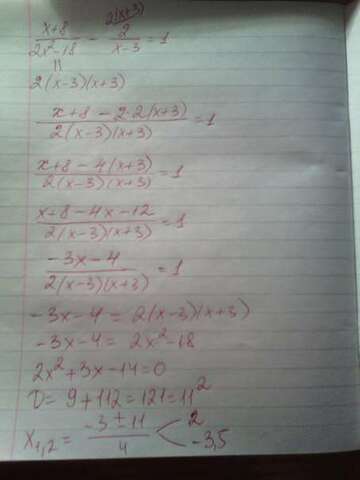 2(x+3)
x+8/2x²-18 - 2/x-3 = 1
=
2(x-3)(x+3)
x+8-2·2(x+3)/2(x-3)(x+3) = 1
x+8-4(x+3)/2(x-3)(x+3) = 1
x+8-4x-12/2(x-3)(x+3) = 1
-3x-4/2(x-3)(x+3) = 1
-3x-4 = 2(x-3)(x+3)
-3x-4 = 2x²-18
2x²+3x-14=0
D= 9+112=121=11²
x1,2 = -3±11/4 < 2
-3,5